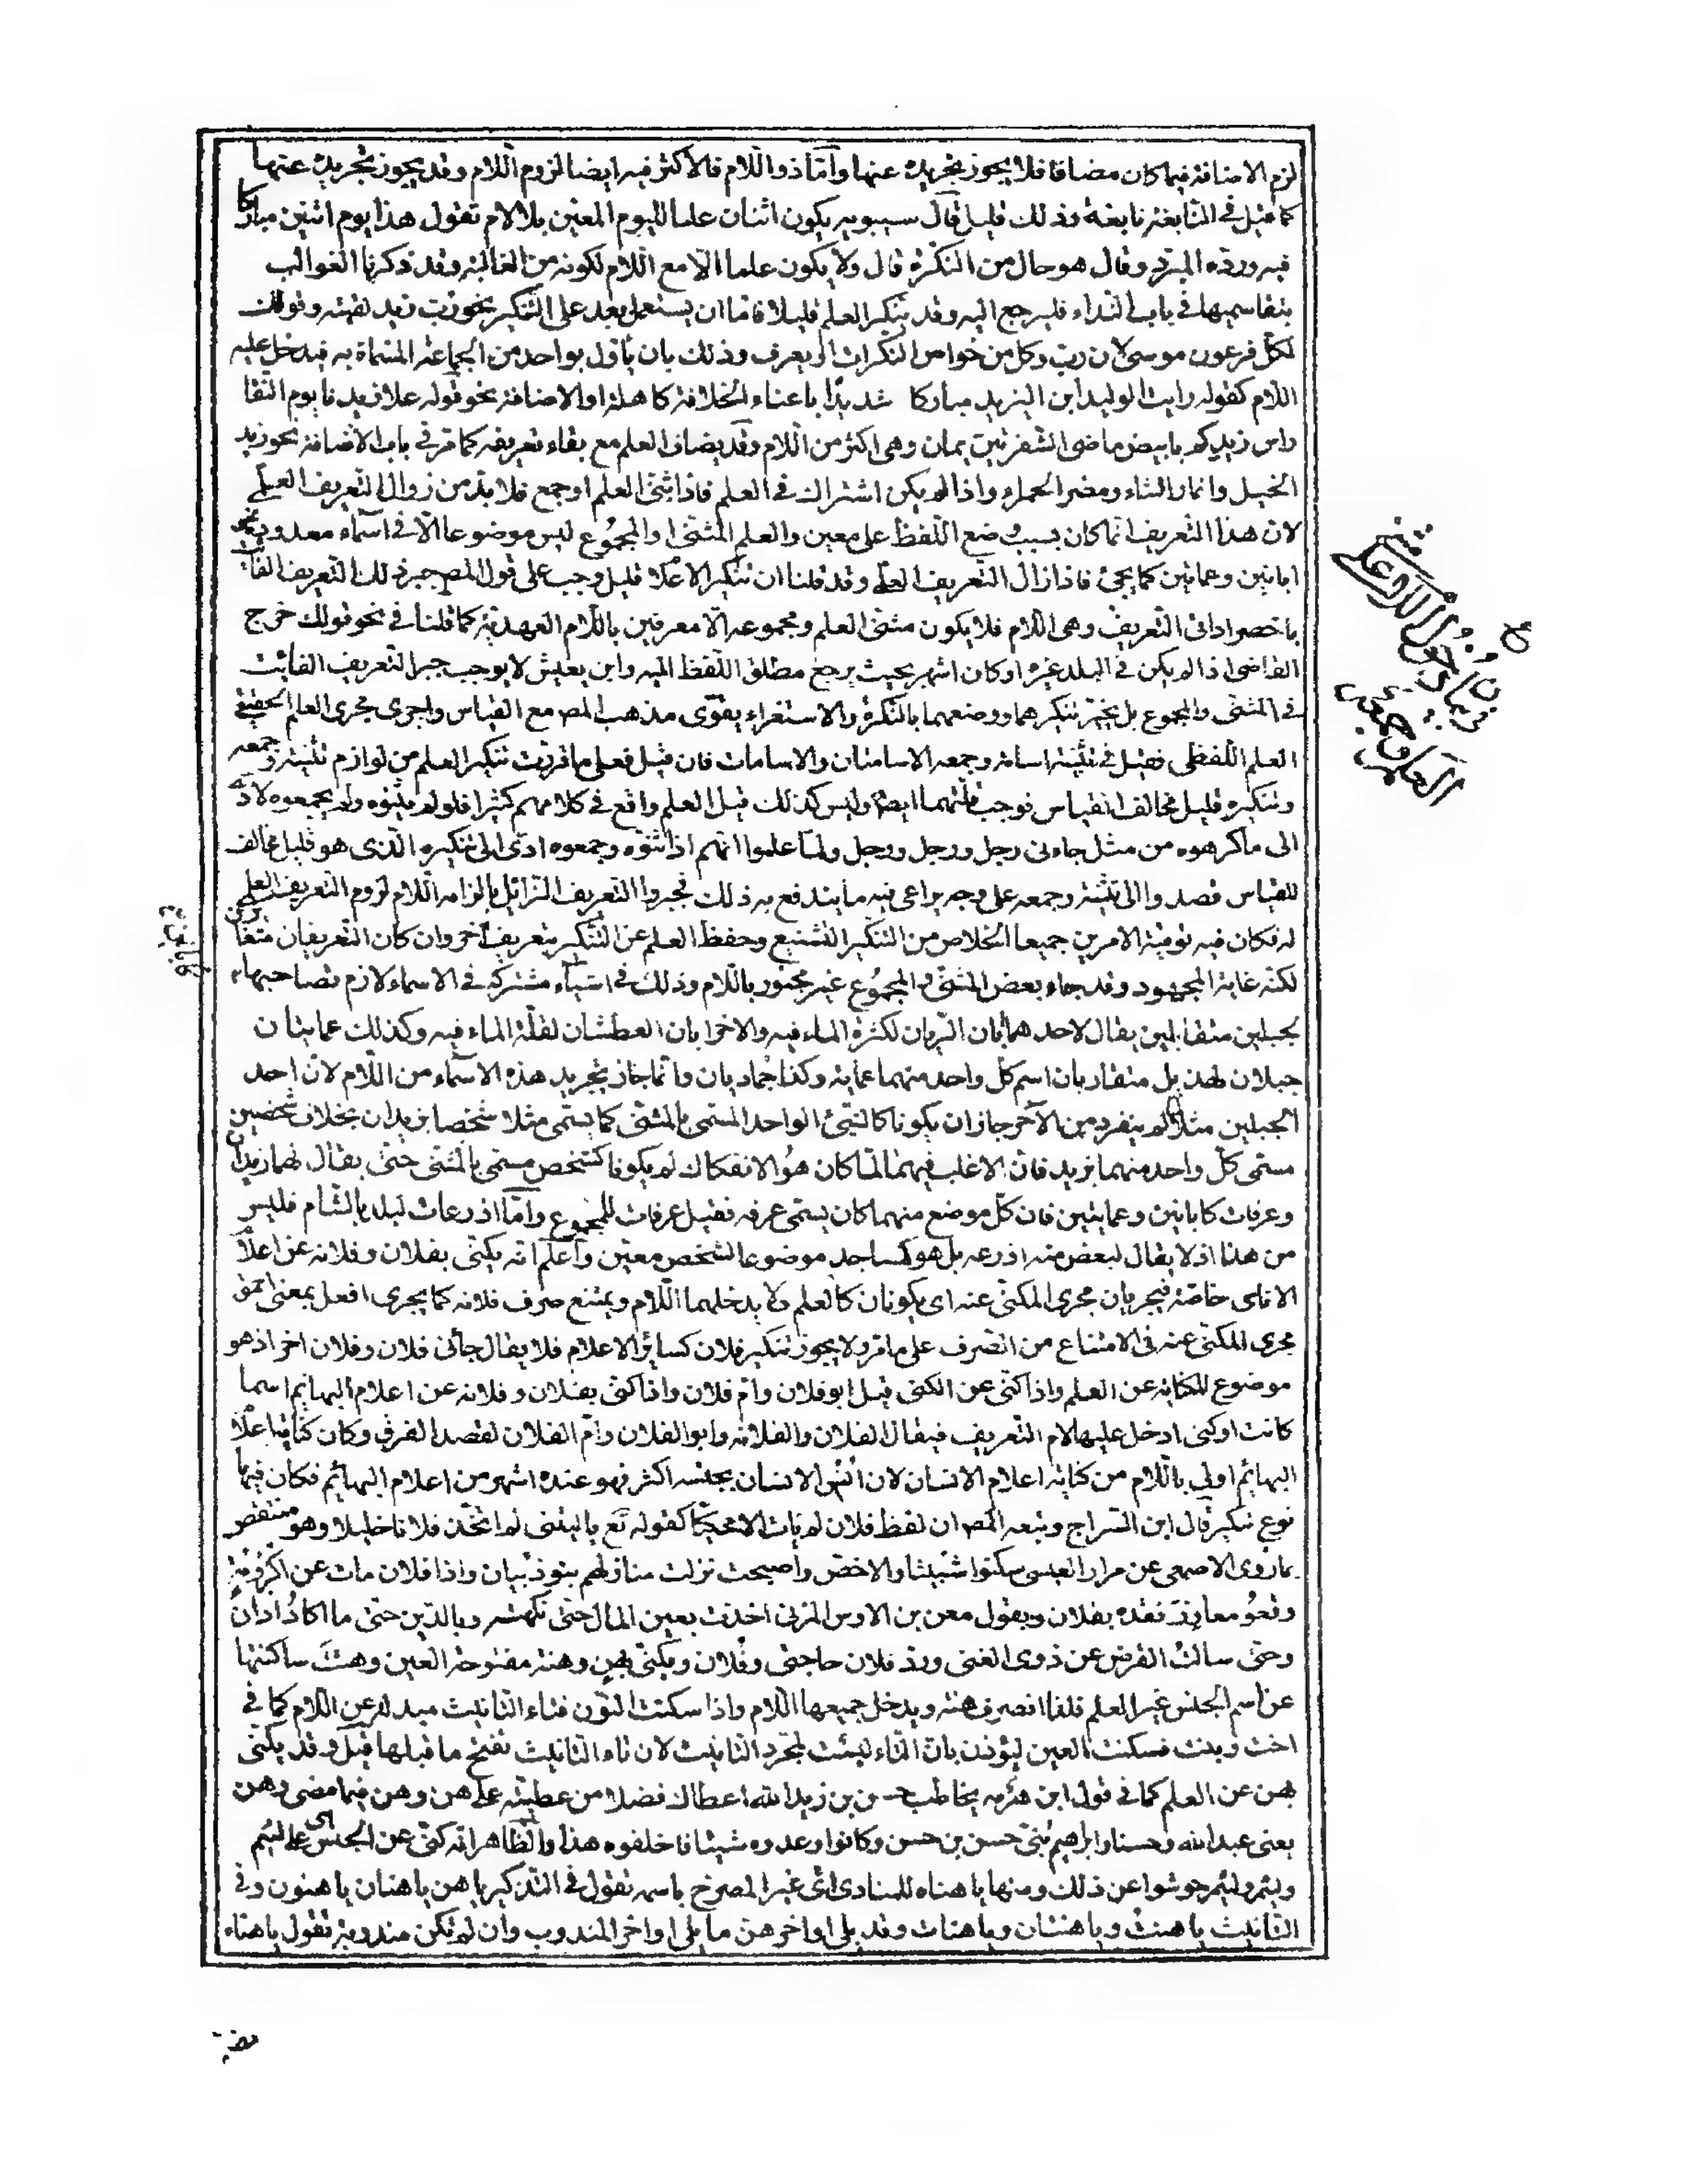 لزم الاضافة فيما كان مضافا فلا يجوز تجريده عنها وأمّا ذو اللّام فالأكثر فيه ايضا لزوم اللّام وقد يجوز تجريده عنها
كما قيل فى النّابغة نابغة وذلك قليل قال سيبويه يكون اثنان علما لليوم المعيّن بلا لام تقول هذا يوم اثنين مباركا
فيه وردّه المبرّد وقال هو حال من النكرة قال ولا يكون علما الّا مع اللّام لكونه من الغالبة وقد ذكرنا الغوالب
بتقاسيمها فى باب النّداء فليرجع اليه وقد ينكر العلم قليلا فامّا ان يستعمل بعد على التّنكير نحو ربّ زيد لقيته وقولك
لكلّ فرعون موسى لان ربّ وكل من خواص النّكرات او يعرف وذلك بان يأوّل بواحد من الجماعة المسماة به فيدخل عليه
اللّام كقوله رايت الوليد ابن اليزيد مباركا شديدا باعناء الخلافة كاهله او الاضافة نحو قوله علا زيدنا يوم النّقا
راس زيدكم بابيض ماضى الشفرتين يمان وهى اكثر من اللّام وقد يضاف العلم مع بقاء تعريفه كما مرّ فى باب الاضافة نحو زيد
الخيل وانمار الشاء ومضر الحمراء واذا لم يكن اشتراك فى العلم فاذا ثنّى العلم او جمع فلا بدّ من زوال التّعريف العلمى
لان هذا التّعريف انّما كان بسبب وضع اللّفظ على معين والعلم المثنّى او المجموع ليس موضوعا الّا فى اسماء معدودة نحو
ابانين وعمايتين كما يجئ فاذا زال التّعريف العلمى وقد قلنا ان تنكير الاعلام قليل وجب على قول المص جبر ذلك التّعريف الفائت
باخصر اداتى التّعريف وهى اللّام فلا يكون مثنى العلم ومجموعه الّا معرفين باللّام العهديّة كما قلنا فى نحو قولك خرج
القاضى اذا لم يكن فى البلد غيره او كان اشهر بحيث يرجع مطلق اللّفظ اليه وابن يعيش لا يوجب جبر التّعريف الفائت
فى المثنى والمجموع بل يخيّر تنكيرهما ووضعهما بالنكرة والاستقراء يقوّى مذهب المص مع القياس واجرى مجرى العلم الحقيقى
العلم اللّفظى فقيل فى تثنية اسامة وجمعه الاسامتان والاسامات فان قيل فعلى ما قررت تنكير العلم من لوازم تثنيته وجمعه
وتنكيره قليل مخالف للقياس فوجب قلّتهما ايضا وليس كذلك قيل العلم واقع فى كلامهم كثيرا فلو لم يثنوه ولم يجمعوه لادّى
الى ما كرهوه من مثل جاءنى رجل ورجل ورجل ولمّا علموا انّهم اذا ثنّوه وجمعوه ادّى الى تنكيره الّذى هو قليل مخالف
للقياس قصدوا الى تثنيته وجمعه على وجه يراعى فيه ما يندفع به ذلك فجبروا التّعريف الزّائل بالزامه اللّام لزوم التّعريف العلمى
له فكان فيه توفية الامرين جميعا الخلاص من التنكير الشنيع وحفظ العلم عن التّنكير بتعريف آخر وان كان التعريفان متغايرين
لكنّه غاية المجهود وقد جاء بعض المثنّى والمجموع غير مجبور باللّام وذلك فى اشياء مشتركة فى الاسماء لازم تصاحبها
لجبلين متقابلين يقال لاحدهما ابان الرّيان لكثرة الماء فيه والاخر ابان العطشان لقلّة الماء فيه وكذلك عمايتان
جبلان لهذيل متقاربان اسم كلّ واحد منهما عماية وكذا جُماديان وانّما جاز تجريد هذه الاسماء من اللّام لانّ احد
الجبلين مثلا لم ينفرد من الآخر جاز ان يكونا كالشئ الواحد المسمى بالمثنّى كما يسمّى مثلا شخصا بزيدان بخلاف شخصين
مسمّى كلّ واحد منهما بزيد فان الاغلب فيهما لمّا كان هو الانفكاك لم يكونا كشخص مسمى بالمثنى حتّى يقال لهما زيدان
وعرفات كابانين وعمايتين فان كلّ موضع منهما كان يسمّى عرفة فقيل عرفات للمجموع وأمّا اذرعات لبلد بالشام فليس
من هذا اذ لا يقال لبعض منه اذرعه بل هو كمساجد موضوعا لشخص معين وأعلم انّه يكنّى بفلان وفلانه عن اعلام
الاناسى خاصّة فيجريان مجرى المكنّى عنه اى يكونان كالعلم ولا يدخلهما اللّام ويمتنع صرف فلانه كما يجرى افعل بمعنى احمق
مجرى المكنّى عنه فى الامتناع من الصّرف على ما مرّ ولا يجوز تنكير فلان كسائر الاعلام فلا يقال جائنى فلان وفلان اخر اذ هو
موضوع للكناية عن العلم واذا كنّى عن الكنى قيل ابو فلان وام فلان واذا كنى بفلان وفلانه عن اعلام البهائم اسما
كانت او كنى ادخل عليها لام التعريف فيقال الفلان والفلانه وابو الفلان وامّ الفلان لقصد الفرق وكان كناية اعلام
البهائم اولى باللّام من كناية اعلام الانسان لان انس الانسان بجنسه اكثر فهو عنده اشهر من اعلام البهائم فكان فيها
نوع تنكير قال ابن السراج وتبعه المص ان لفظ فلان لم يات الا محكيّا كقوله تع يا ليتنى لم اتّخذ فلانا خليلا وهو منتقض
بما روى الاصمعى عن مرار العبسى سكنوا شبيثا والاحص واصبحت نزلت منازلهم بنو ذبيان واذا فلان مات عن اكرومة
رقعوا معاوز فقده بفلان وبقول معن بن الاوس المزنى اخذت بعين المال حتّى نهكته وبالدّين حتّى ما اكاد ادان
وحتى سالت القرض عن ذوى الغنى وردّ فلان حاجتى وفلان ويكنّى بهن وهنة مفتوحة العين وهنت ساكنتها
عن اسم الجنس غير العلم فلذا انصرف هنة ويدخل جميعها اللّام واذا سكنت النّون فتاء التّانيث مبدلة عن اللّام كما فى
اخت وبنت فسكنت العين ليؤذن بانّ التّاء ليست لمجرد التّانيث لان تاء التّانيث تفتح ما قبلها قيل وقد يكنّى
بهن عن العلم كما فى قول ابن هرمه يخاطب حسن بن زيد الله اعطاك فضلا من عطيته على هن وهن فيما مضى وهن
يعنى عبد الله وحسنا وابراهيم بنى حسن بن حسن وكانوا وعدوه شيئا فاخلفوه هذا والظاهر انه كنّى عن الجنس اى على لئيم
ولئيم ولئيم جوشوا عن ذلك ومنها يا هناه للمنادى اى غير المصرّح باسمه تقول فى التذكير يا هن يا هنان يا هنون وفى
التّانيث يا هنت ويا هنتان ويا هنات وقد يلى اواخرهن ما يلى اواخر المندوب وان لم تكن مندوبة تقول يا هناه